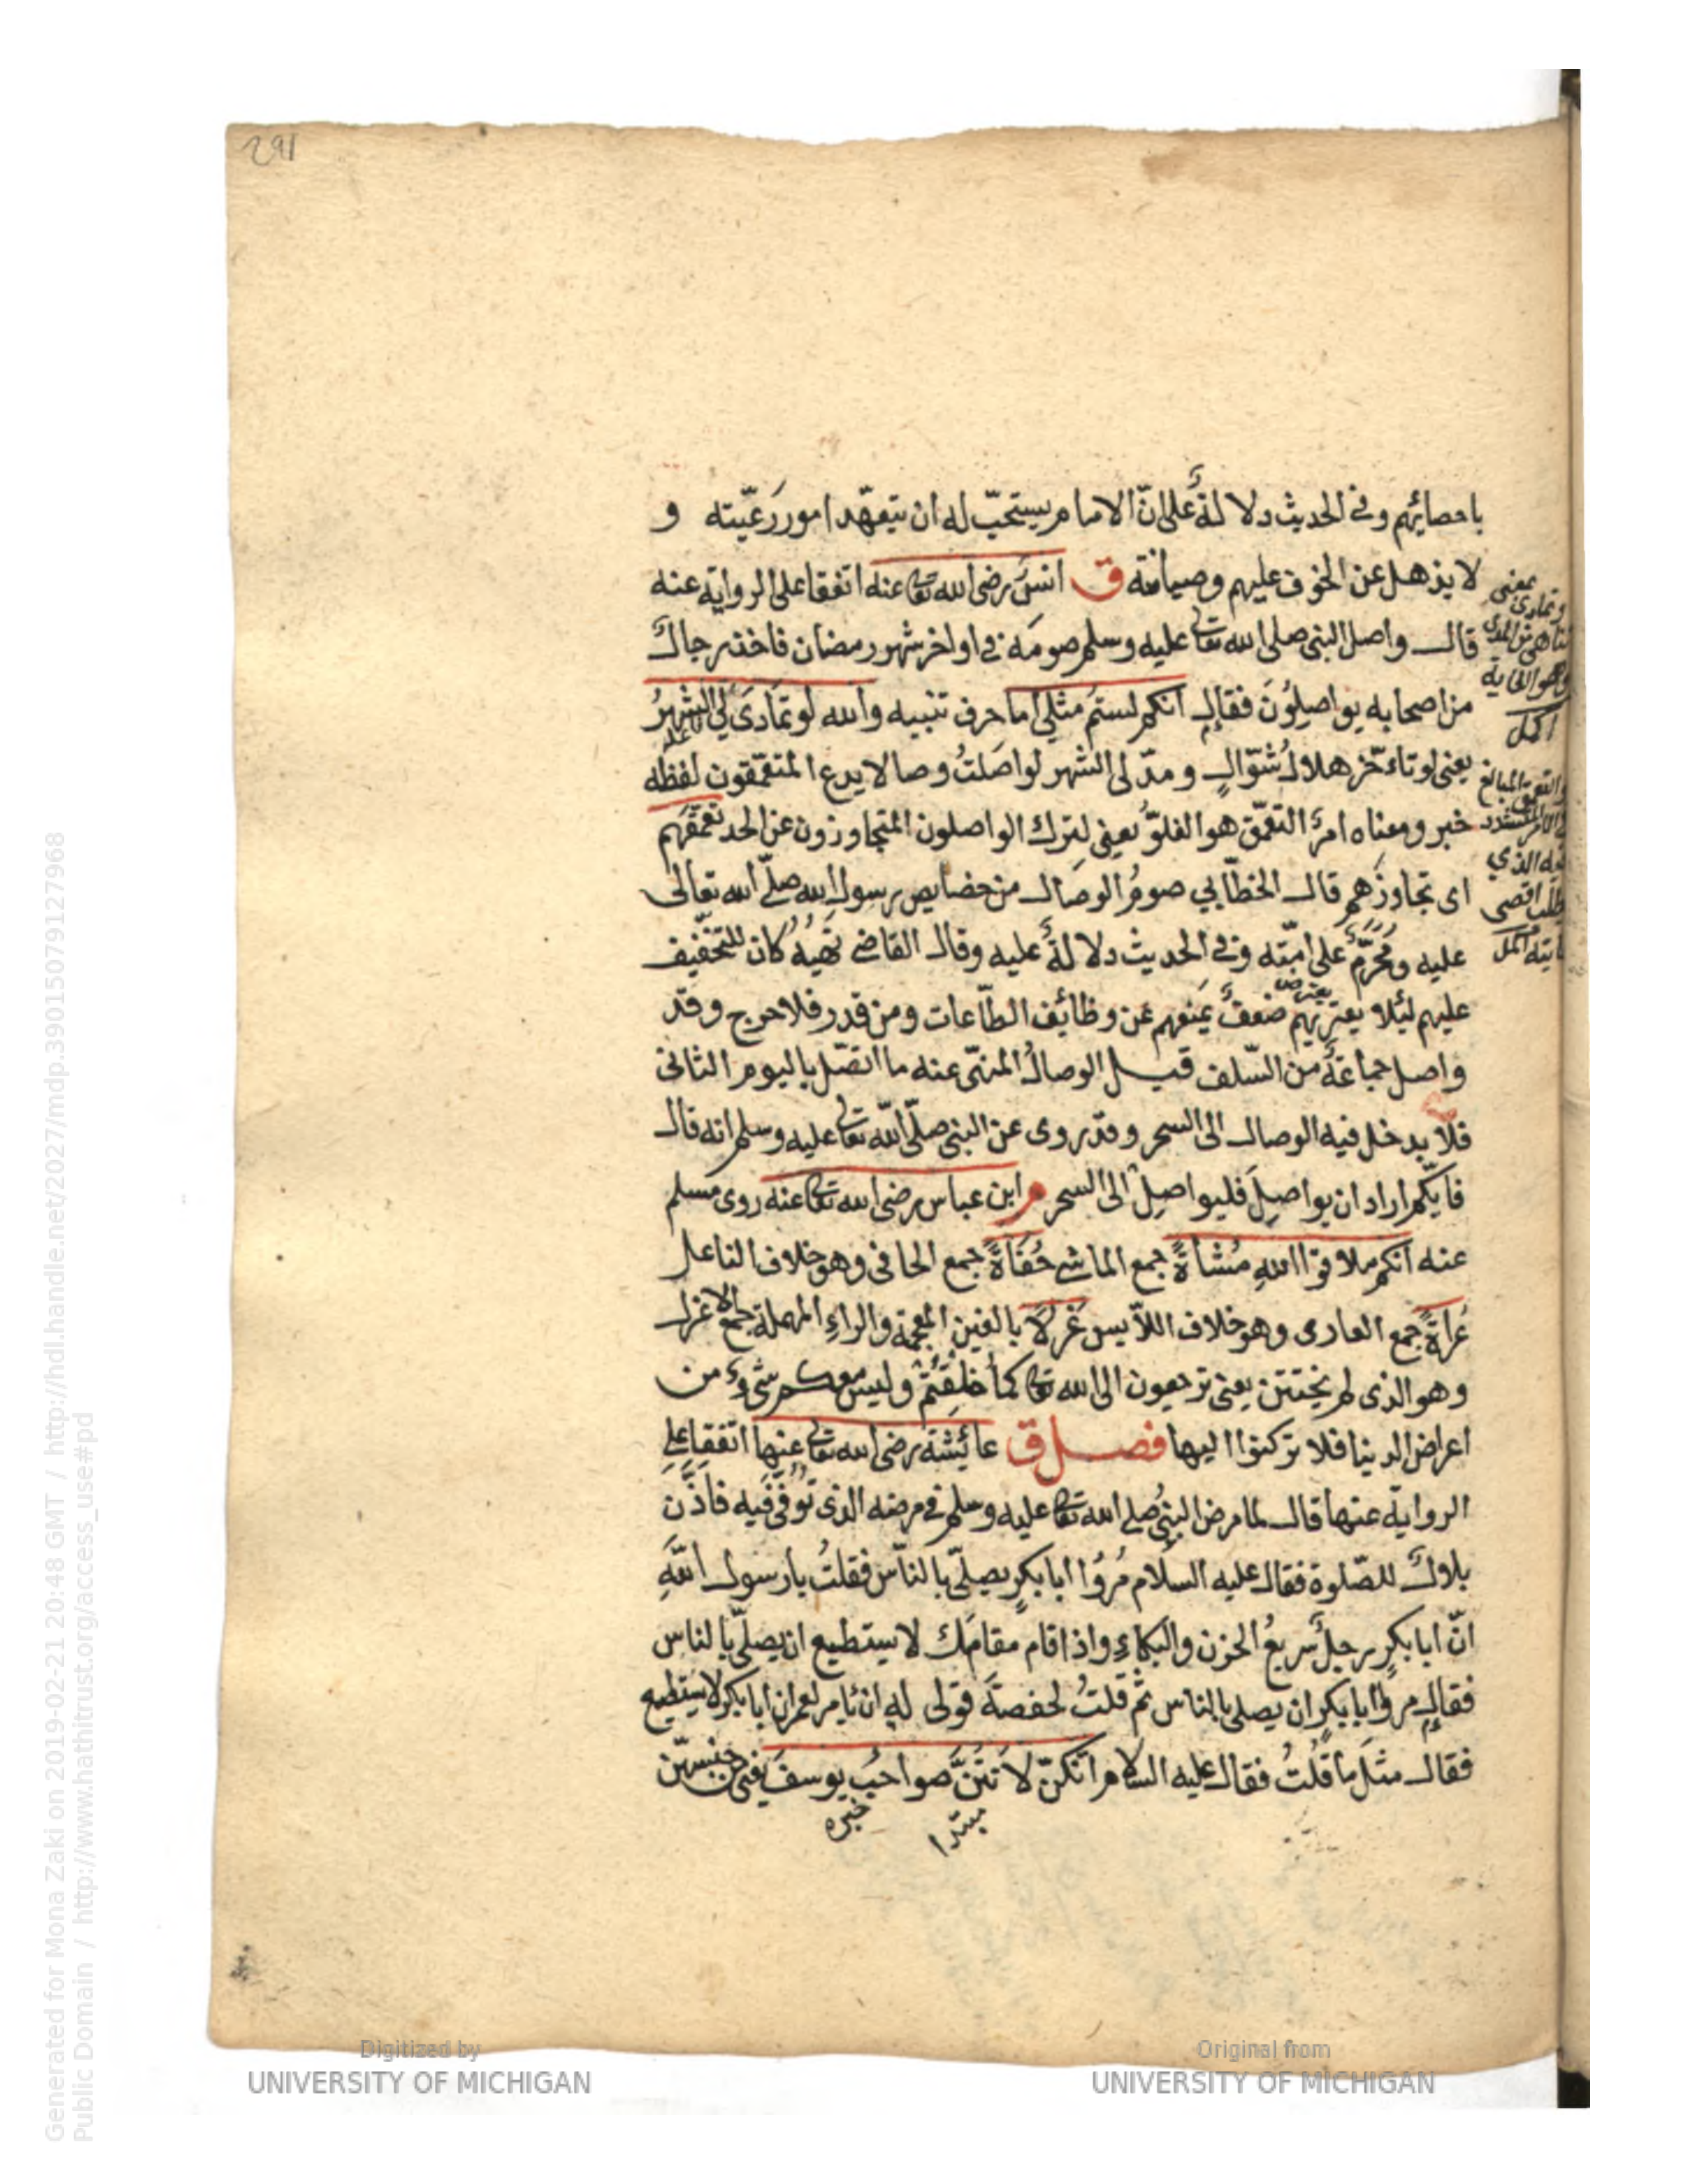 291
باحصائهم وفى الحديث دلالةٌ على انّ الامام يستحبّ له ان يتعهّد امور رَعّيته و
لا يذهل عن الخوف عليهم وصيانته ق انسٌ رضى الله تعا عنه اتفقا على الرواية عنه
قال واصل النبى صلى الله تعا عليه وسلم صومَه فى اواخر شهر رمضان فاخذ رجالٌ
من اصحابه يواصلُونَ فقال انكم لستُم مثلى اما حرف تنبيه والله لو تمَادَى لى الشهرُ
يعنى لو تاءخّر هلالُ شوّالٍ ومدّ لى الشهر لواصَلتُ وصالا يدع المتعمّقون لفظه
خبر ومعناه امرٌ التعمّق هو الغلوّ يعنى ليترك الواصلون المتجاوزون عن الحد تعمّقهم
اى تجاوزَهم قال الخطّابي صومُ الوصال من خصايص رسول الله صلّى الله تعالى
عليه ومُحرّمٌ على امّته وفى الحديث دلالةٌ عليه وقال القاضى نَهْيُهُ كان للتخفيف
عليهم ليئلا يعتريهم ضعفٌ يَمنعهم عن وظائف الطّاعات ومن قدر فلا حرج وقد
واصل جماعَةٌ من السّلف قيل الوصالُ المنهّى عنه ما اتصّل باليوم الثانى
فلا يدخل فيه الوصال الى السحر وقد روى عن النبى صلّى الله تعا عليه وسلم انه قال
فايّكم اراد ان يواصِلَ فليواصِلْ الى السحر م ابن عباس رضى الله تعا عنه روى مسلم
عنه انكم ملاقوا اللهِ مُشاةً جمع الماشى حُفَاةً جمع الحافى وهو خلاف الناعل
عُراةً جمع العارى وهو خلاف اللاّبس غُرلاً بالغين المعجمة والراءِ المهملة جمع الاغرل
وهو الذى لم يختتن يعنى ترجعون الى الله تعا كما خلِقتُمْ وليس معكم شىء من
اعراض الدينا فلا تركنوا اليها فصل ق عائِشَة رضى الله تعا عنها اتفقا على
الرواية عنها قال لما مرض النبىُ صلى الله تعا عليه وسلم فى مرضه الذى تُوُفّىَ فيه فاذَّن
بلالٌ للصّلوة فقال عليه السلام مُرُوا ابا بكرٍ يصلّى بالناّس فقلتُ يا رسول اللهِ
انّ ابا بكرٍ رجلٌ سريعُ الحزن والبكاءِ واذا قام مقامَك لا يستطيع ان يصلّى بالناس
فقال مروا ابا بكرٍ ان يصلى بالناس ثم قلتُ لحفصةَ قولى له ان يامر لعمر ان ابا بكر لا يستطيع
فقال مثلَ ما قُلتُ فقال عليه السلام انكنّ لاَنتُنَّ صواحبُ يوسفَ يعنى من جنسهّن
مبتدا
خبره